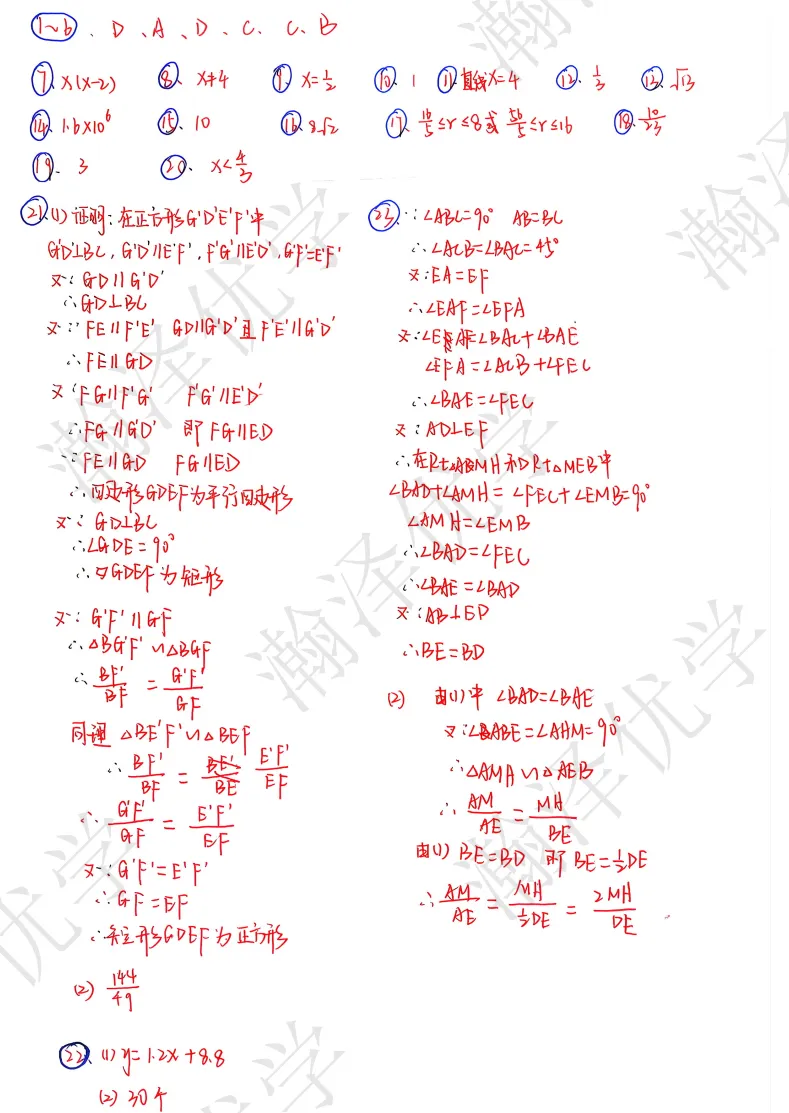 1~6、D、A、D、C、C、B
7、x(x-2) 8、x≠4 9、x=1/2 10、1 11、直线x=4 12、1/3 13、√13
14、1.6×10⁶ 15、10 16、8√2 17、16/5≤r≤8或56/5≤r≤16 18、10/23
19、3 20、x<4/3
21、(1) 证明:在正方形G'D'E'F'中
G'D'⊥BC, G'D'∥E'F', F'G'∥E'D', G'F'=E'F'
又∵GD∥G'D'
∴GD⊥BC
又∵FE∥F'E' GD∥G'D'且F'E'∥G'D'
∴FE∥GD
又∵FG∥F'G' F'G'∥E'D'
∴FG∥G'D' 即FG∥ED
∵FE∥GD FG∥ED
∴四边形GDEF为平行四边形
又∵GD⊥BC
∴∠GDE=90°
∴▱GDEF为矩形
又∵G'F'∥GF
∴△BG'F'∽△BGF
∴BF'/BF=G'F'/GF
同理 △BE'F'∽△BEF
∴BF'/BF=E'F'/EF
∴G'F'/GF=E'F'/EF
又∵G'F'=E'F'
∴GF=EF
∴矩形GDEF为正方形
(2) 144/49
22、(1) y=1.2x+8.8
(2) 30个
23、∵∠ABC=90° AB=BC
∴∠ACB=∠BAC=45°
又∵EA=EF
∴∠EAF=∠EFA
又∵∠EAF=∠BAC+∠BAE
∠EFA=∠ACB+∠FEC
∴∠BAE=∠FEC
又∵AD⊥EF
∴在Rt△AMH和Rt△MEB中
∠BAD+∠AMH=∠FEC+∠EMB=90°
∠AMH=∠EMB
∴∠BAD=∠FEC
∴∠BAE=∠BAD
又∵AB⊥ED
∴BE=BD
(2) 由(1)中 ∠BAD=∠BAE
又∵∠ABE=∠AHM=90°
∴△AMH∽△AEB
∴AM/AE=MH/BE
由(1) BE=BD 即BE=1/2DE
∴AM/AE=MH/(1/2DE)=2MH/DE
瀚泽优学
瀚泽优学
瀚泽优学
瀚泽优学